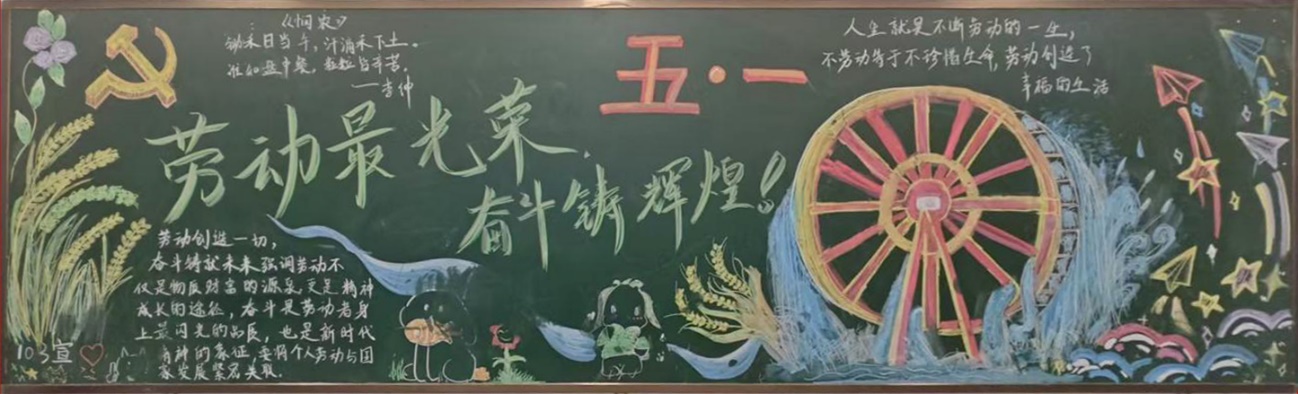 《悯农》
锄禾日当午，汗滴禾下土。
谁知盘中餐，粒粒皆辛苦。
——李绅
五·一
人生就是不断劳动的一生，
不劳动等于不珍惜生命，劳动创造了
幸福的生活
劳动最光荣，
奋斗铸辉煌！
劳动创造一切，
奋斗铸就未来强调劳动不
仅是物质财富的源泉更是精神
成长的途径，奋斗是劳动者身
上最闪光的品质，也是新时代
精神的象征，要将个人劳动与国
家发展紧密关联.
103宣